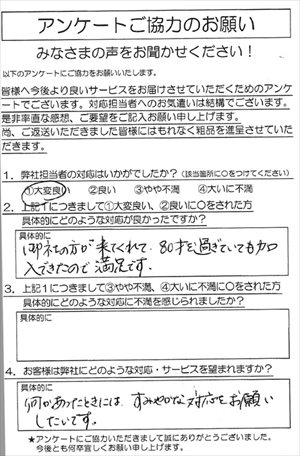 アンケートご協力のお願い
みなさまの声をお聞かせください!
以下のアンケートにご協力をお願いいたします。
皆様へ今後より良いサービスをお届けさせていただくためのアンケ
ートでございます。対応担当者へのお気遣いは結構でございます。
是非率直な感想、ご要望をご記入お願い申し上げます。
尚、ご返送いただきました皆様にはもれなく粗品を進呈させていた
だきます。
1.弊社担当者の対応はいかがでしたか?(該当箇所に○をつけてください)
①大変良い ②良い ③やや不満 ④大いに不満
2.上記1につきまして①大変良い、②良いに○をされた方
具体的にどのような対応が良かったですか?
具体的に
御社の方が来てくれて、80才を過ぎていても加
入できたので満足です。
3.上記1につきまして③やや不満、④大いに不満に○をされた方
具体的にどのような対応に不満を感じられましたか?
具体的に
4.お客様は弊社にどのような対応・サービスを望まれますか?
具体的に
何かあったときには、すみやかな対応をお願い
したいです。
★アンケートにご協力いただきまして誠にありがとうございました。
今後とも何卒宜しくお願い申し上げます。